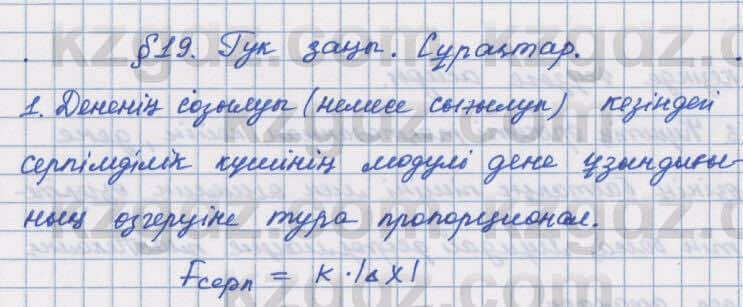 §19. Гук заңы. Сұрақтар.
1. Дененің созылуы (немесе сығылуы) кезіндегі
серпімділік күшінің модулі дене ұзындығы-
ның өзгеруіне тура пропорционал.
Fсерп = k·|Δx|